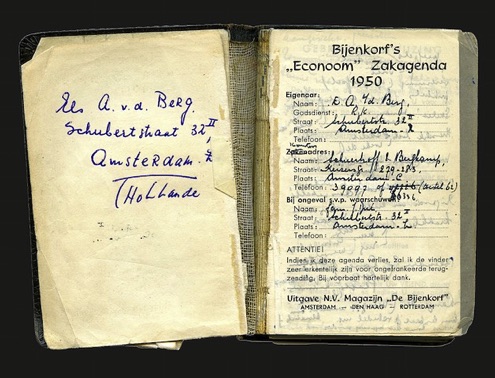 Els A. v.d. Berg.
Schubertstraat 32 II
Amsterdam. Z
(Hollande
Bijenkorf's
„Econoom” Zakagenda
1950
Eigenpar:
Naam: E. A. v/d. Berg,
Godsdienst: R.K.
Straat: Schubertstr. 32 II
Plaats: Amsterdam - Z
Telefoon:
Zakenadres:
Naam:
Straat: Keizersgr. 279-283
Plaats: Amsterdam C.
Telefoon: 39097 of
Bij ongeval s.v.p. waarschuwen:
Naam: Fam.
Straat: Schubertstr. 32 II
Plaats: Amsterdam - Z.
Telefoon:
ATTENTIE!
Indien ik deze agenda verlies, zal ik de vinder
zeer erkentelijk zijn voor ongefrankeerde terug-
zending. Bij voorbaat hartelijk dank.
Uitgave N.V. Magazijn „De Bijenkorf”
AMSTERDAM — DEN HAAG — ROTTERDAM